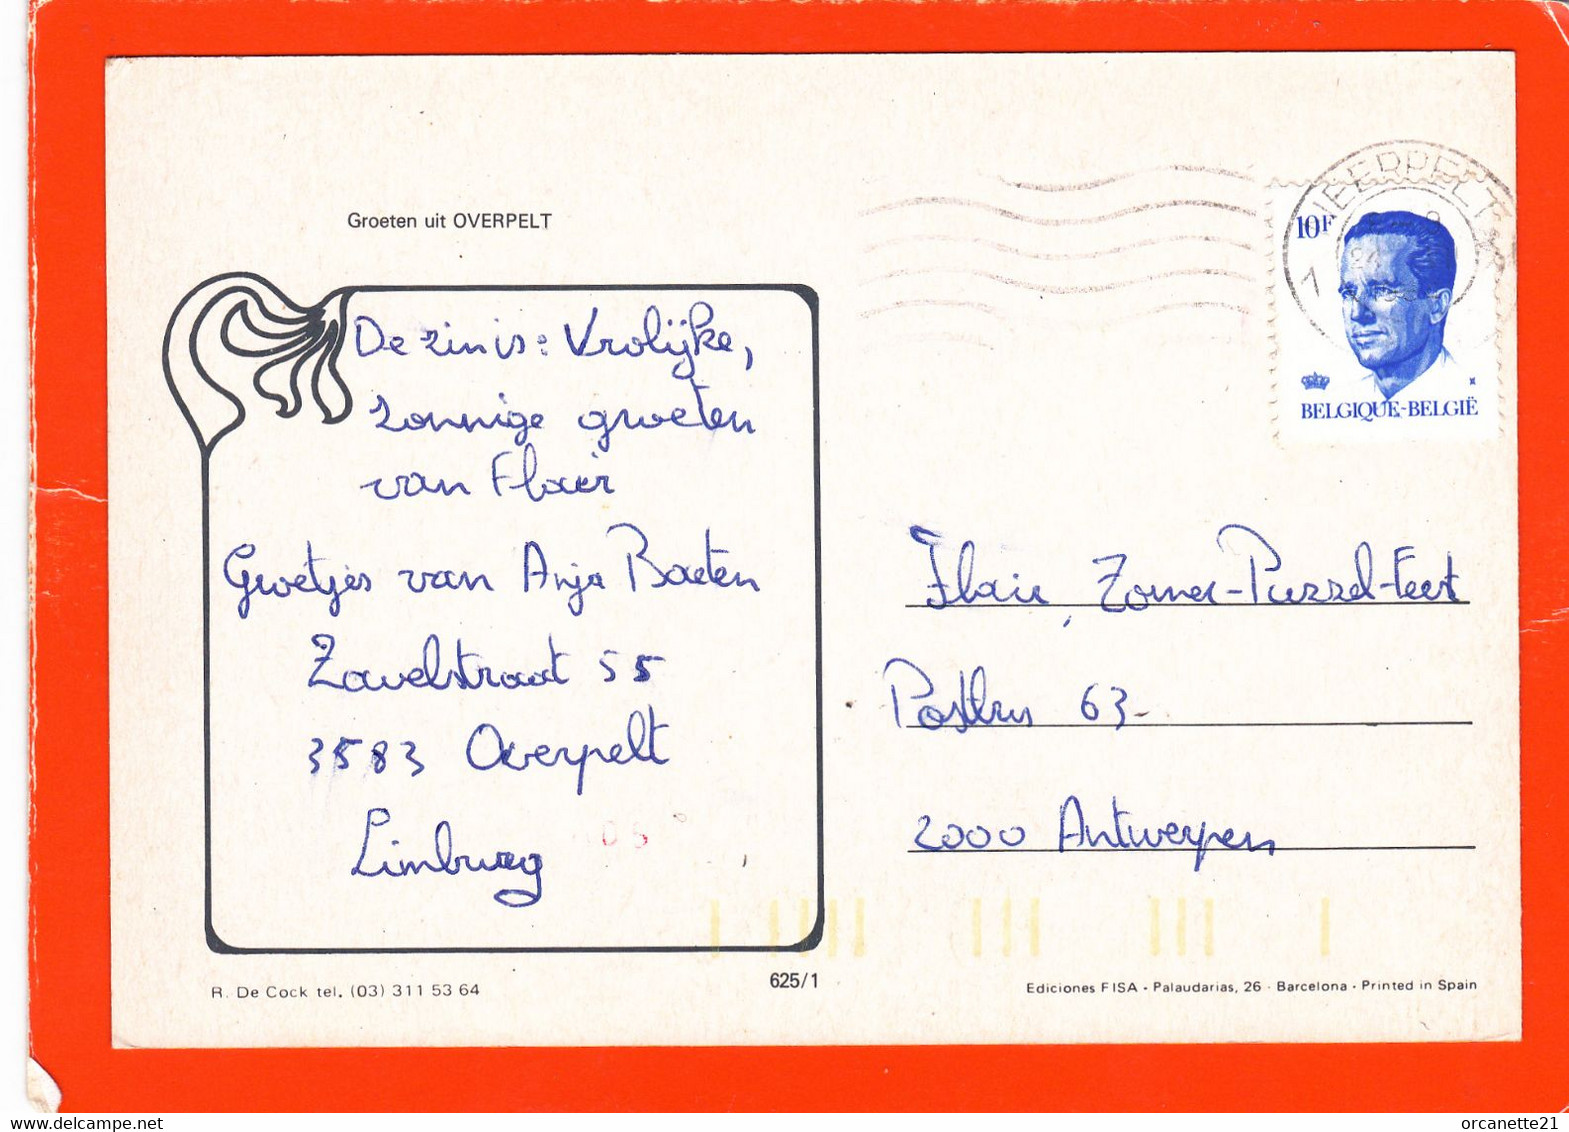 Groeten uit OVERPELT
De zin is: Vrolijke,
zonnige groeten
van Flair
Groetjes van Anja Baeten
Zavelstraat 55
3583 Overpelt
Limburg
R. De Cock tel. (03) 311 53 64
625/1
NEERPELT
1
10F
BELGIQUE-BELGIË
Flair, Zomer-Puzzel-Feest
Postbus 63
2000 Antwerpen
Ediciones FISA - Palaudarias, 26 - Barcelona - Printed in Spain
www.delcampe.net
orcanette21